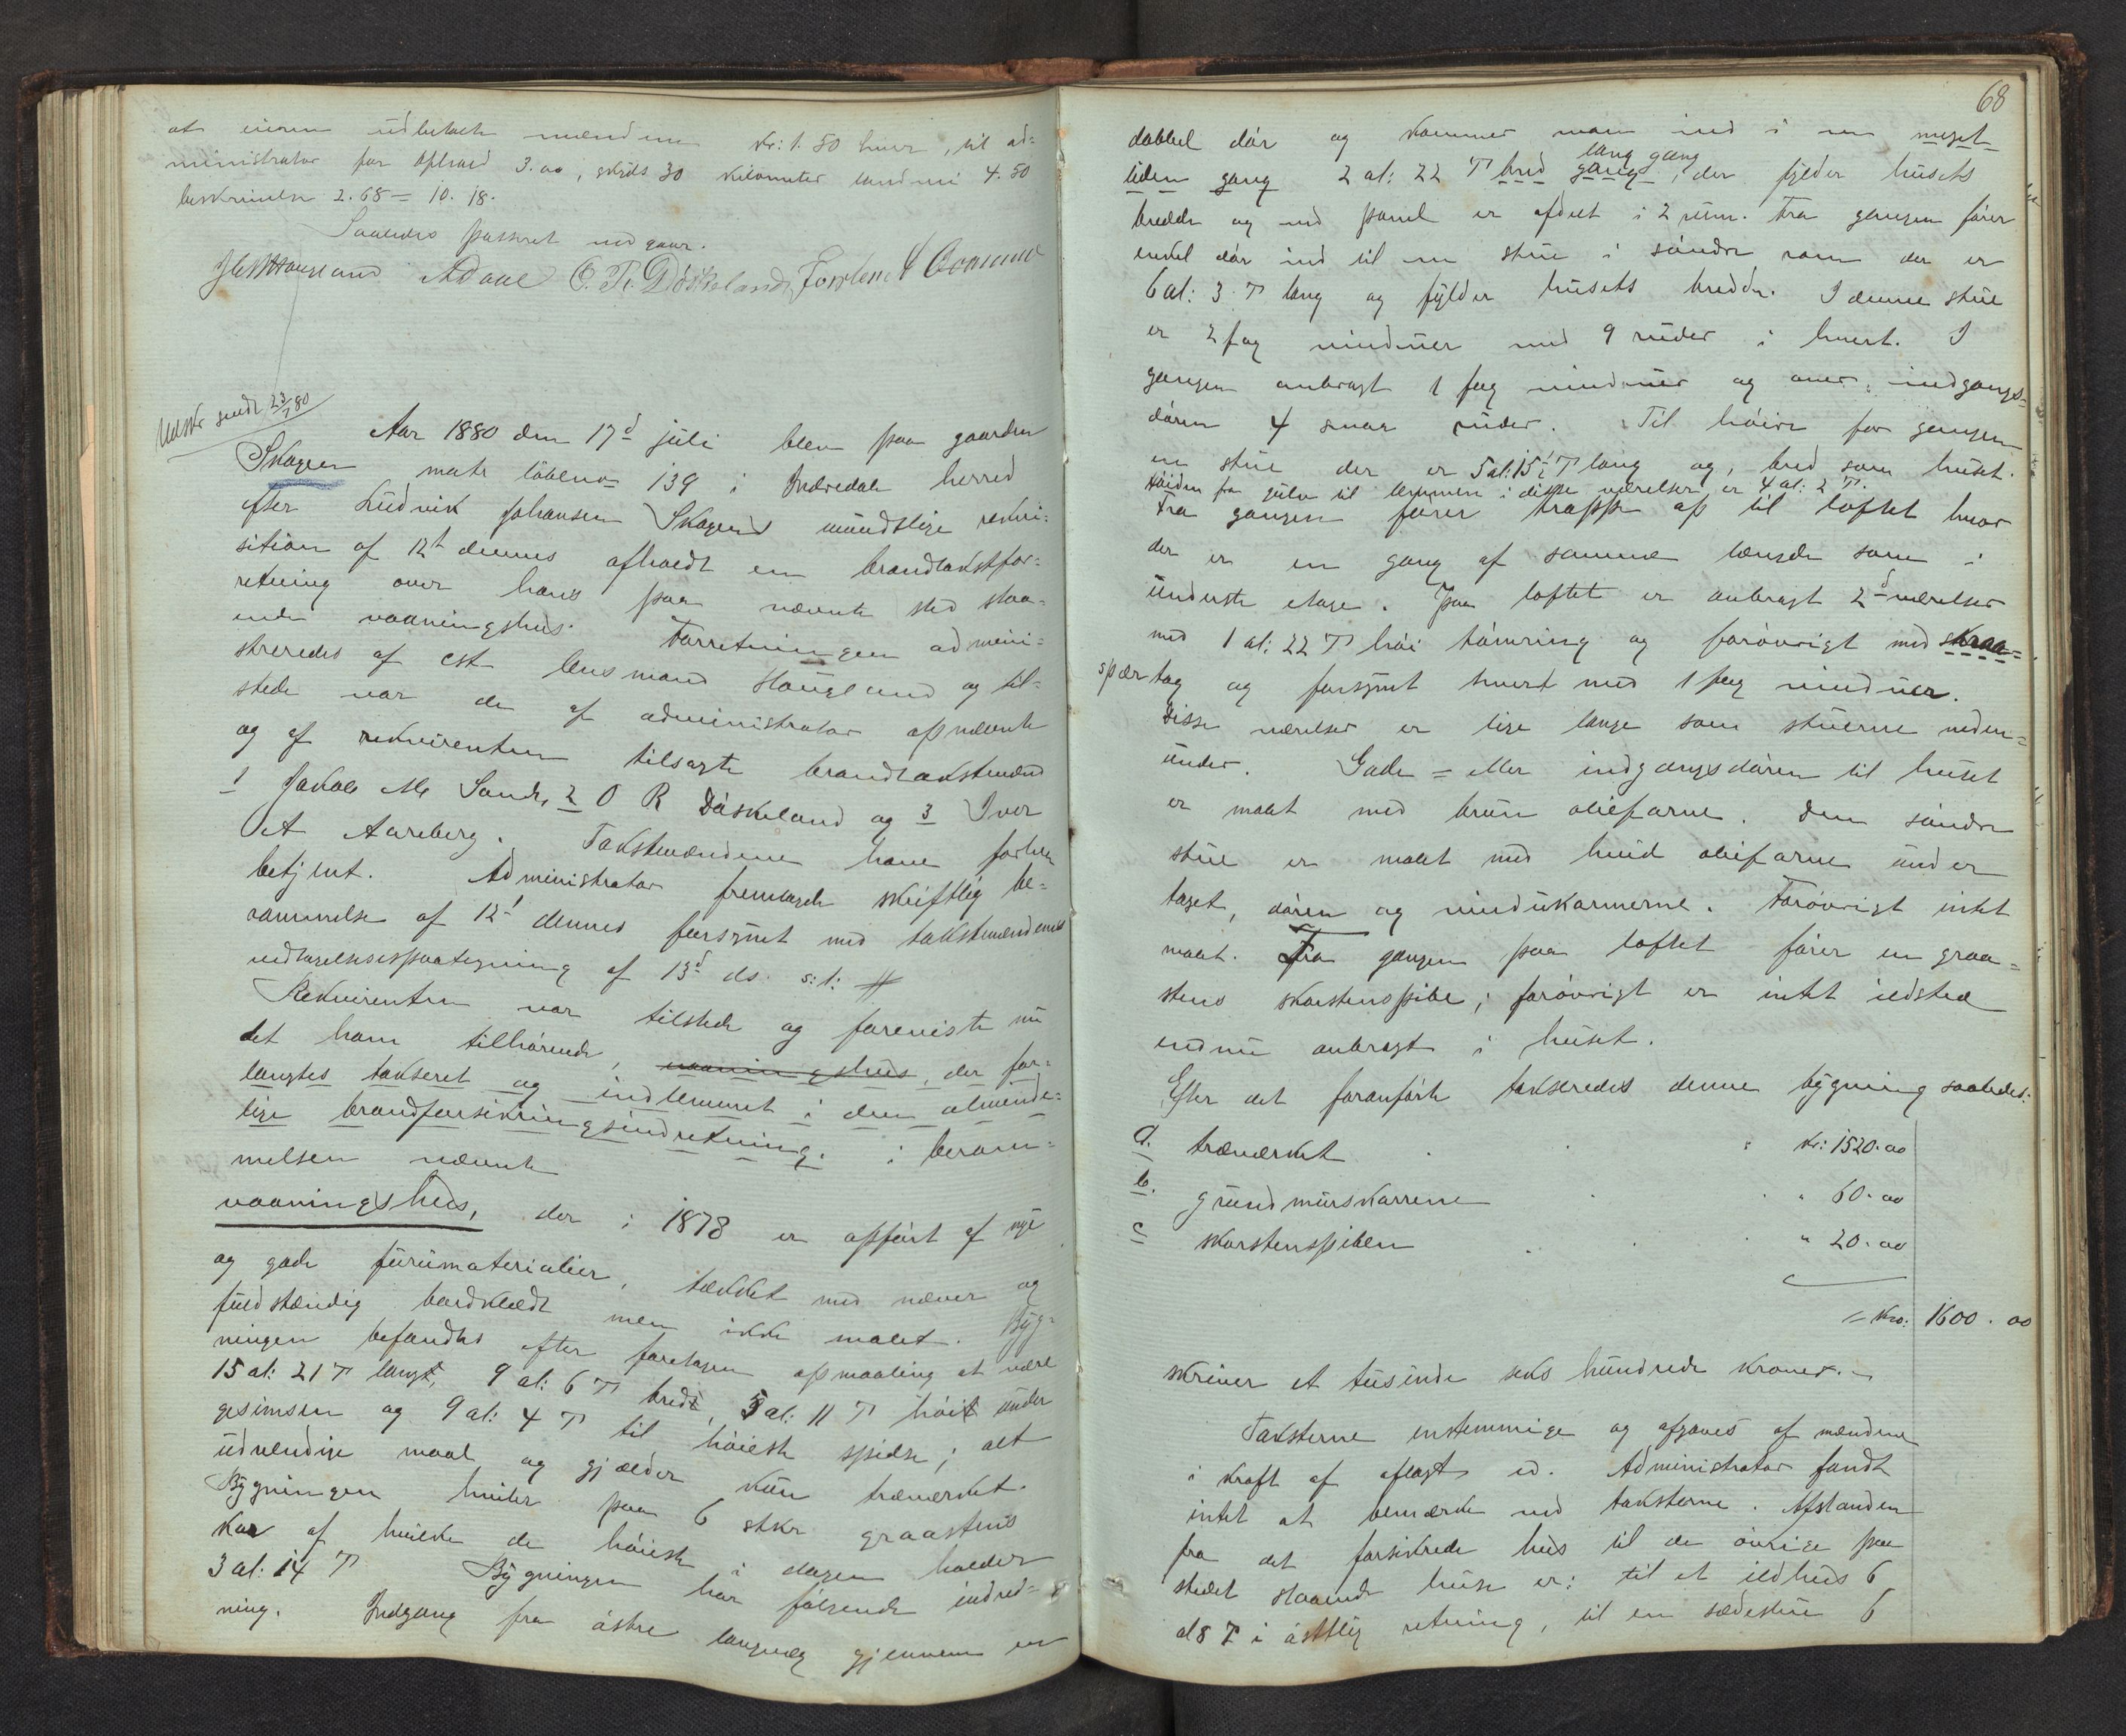 at eieren udbetalte mændene kr: 1.50 hver, til ad=
ministrator for ophold 3.00, skyds 30 kilometer landvei 4.50
beskrivelse 2.68 = 10.18.
Saaledes passeret vedgaar.
Haugland AdAae O. R. Döskeland
Udskr sendt 23/7 80
Aar 1880 den 17d juli blev paa gaarden
Skogen matr löbeno 139 i Indredale herred
efter Ludvik Johansen Skogens mundtlige rekvi=
sition af 12t dennes afholdt en brandtakstfor=
retning over hans paa nævnte sted staa=
ende vaaningshus. Forretningen admini=
streredes af cst lensmand Haugland og til=
stede var de af administrator opnævnte
og af rekvirenten tilsagte brandtakstmænd
1 Jakob M Sande, 2 O R Döskeland og 3 Iver
A Aareberg. Takstmændene have forhen
betjent. Administrator fremlagde skriftlig be=
rammelse af 12t dennes forsynet med takstmændenes
vedtagelsespaategning af 13d ds. s: l: #
Rekvirenten var tilstede og foreviste nu
det ham tilhörende, vaaningshus, der for=
langtes takseret og indlemmet i den alminde=
lige brandforsikringsindretning. i beram=
melsen nævnte
vaaningshus, der i 1878 er opfört af nye
og gode furumaterialier, tækket med næver og
fuldstændig bordklædt men ikke malet. Byg=
ningen befandtes efter foretagen opmaaling at være
15 al: 21 T langt, 9 al: 6 T bredt, 5 al: 11 T höit under
gesimsen og 9 al: 4 T til höieste spidse; alt
udvendige maal og gjælder kun træverket.
Bygningen hviler paa 6 stkr graastens
kar af hvilke de höieste i dagen holder
3 al: 14 T Bygningen har fölgende indred=
ning. Indgang fra östre langvæg gjennem en
68
dobbel dör og kommer man ind i en meget
liden gang 2 al: 22 T bred lang gang gang, der fylder husets
bredde og ved panel er afdelt i 2 rum. Fra gangen förer
enkel dör ind til en stue i söndre rom der er
6 al: 3 T lang og fylder husets bredde. I denne stue
er 2 fag vinduer med 9 ruder i hvert. I
gangen anbragt 1 fag vinduer og over indgangs=
dören 4 smaa ruder. Til höire for gangen
en stue der er 5 al: 15½ T lang og, bred som huset.
Höiden fra gulv til lemmen i disse værelser er 4 al: 2 T.
Fra gangen förer trappe op til loftet hvor
der er en gang af samme længde som i
underste etage. Paa loftet er anbragt 2d værelser
med 1 al: 22 T höi tömring og forövrigt med skraa=
spær tag og forsynet hvert med 1 fag vinduer.
Disse værelser er lige lange som stuerne neden=
under. Gade= eller indgangsdören til huset
er malt med brun oliefarve. Den söndre
stue er malet med hvid oliefarve under
taget, dören og vindukarmerne. Forövrigt intet
malet. Fra gangen paa loftet förer en graa=
stens skorstenspibe; forövrigt er intet ildsted
endnu anbragt i huset.
Efter det foranförte takseredes denne bygning saaledes:
a. træverket kr: 1520.00
b. grundmurskarrene " 60.00
c skorstenspiben " 20.00
= kro: 1600.00
skriver et tusinde seks hundrede kroner.
Taksterne enstemmige og afgaves af mændene
i kraft af aflagt ed. Administrator fandt
intet at bemærke ved taksterne. Afstanden
fra det forsikrede hus til de övrige paa
stedet staaende huse er: til et ildhus 6
al 8 T i östtlig retning, til en sædestue 6